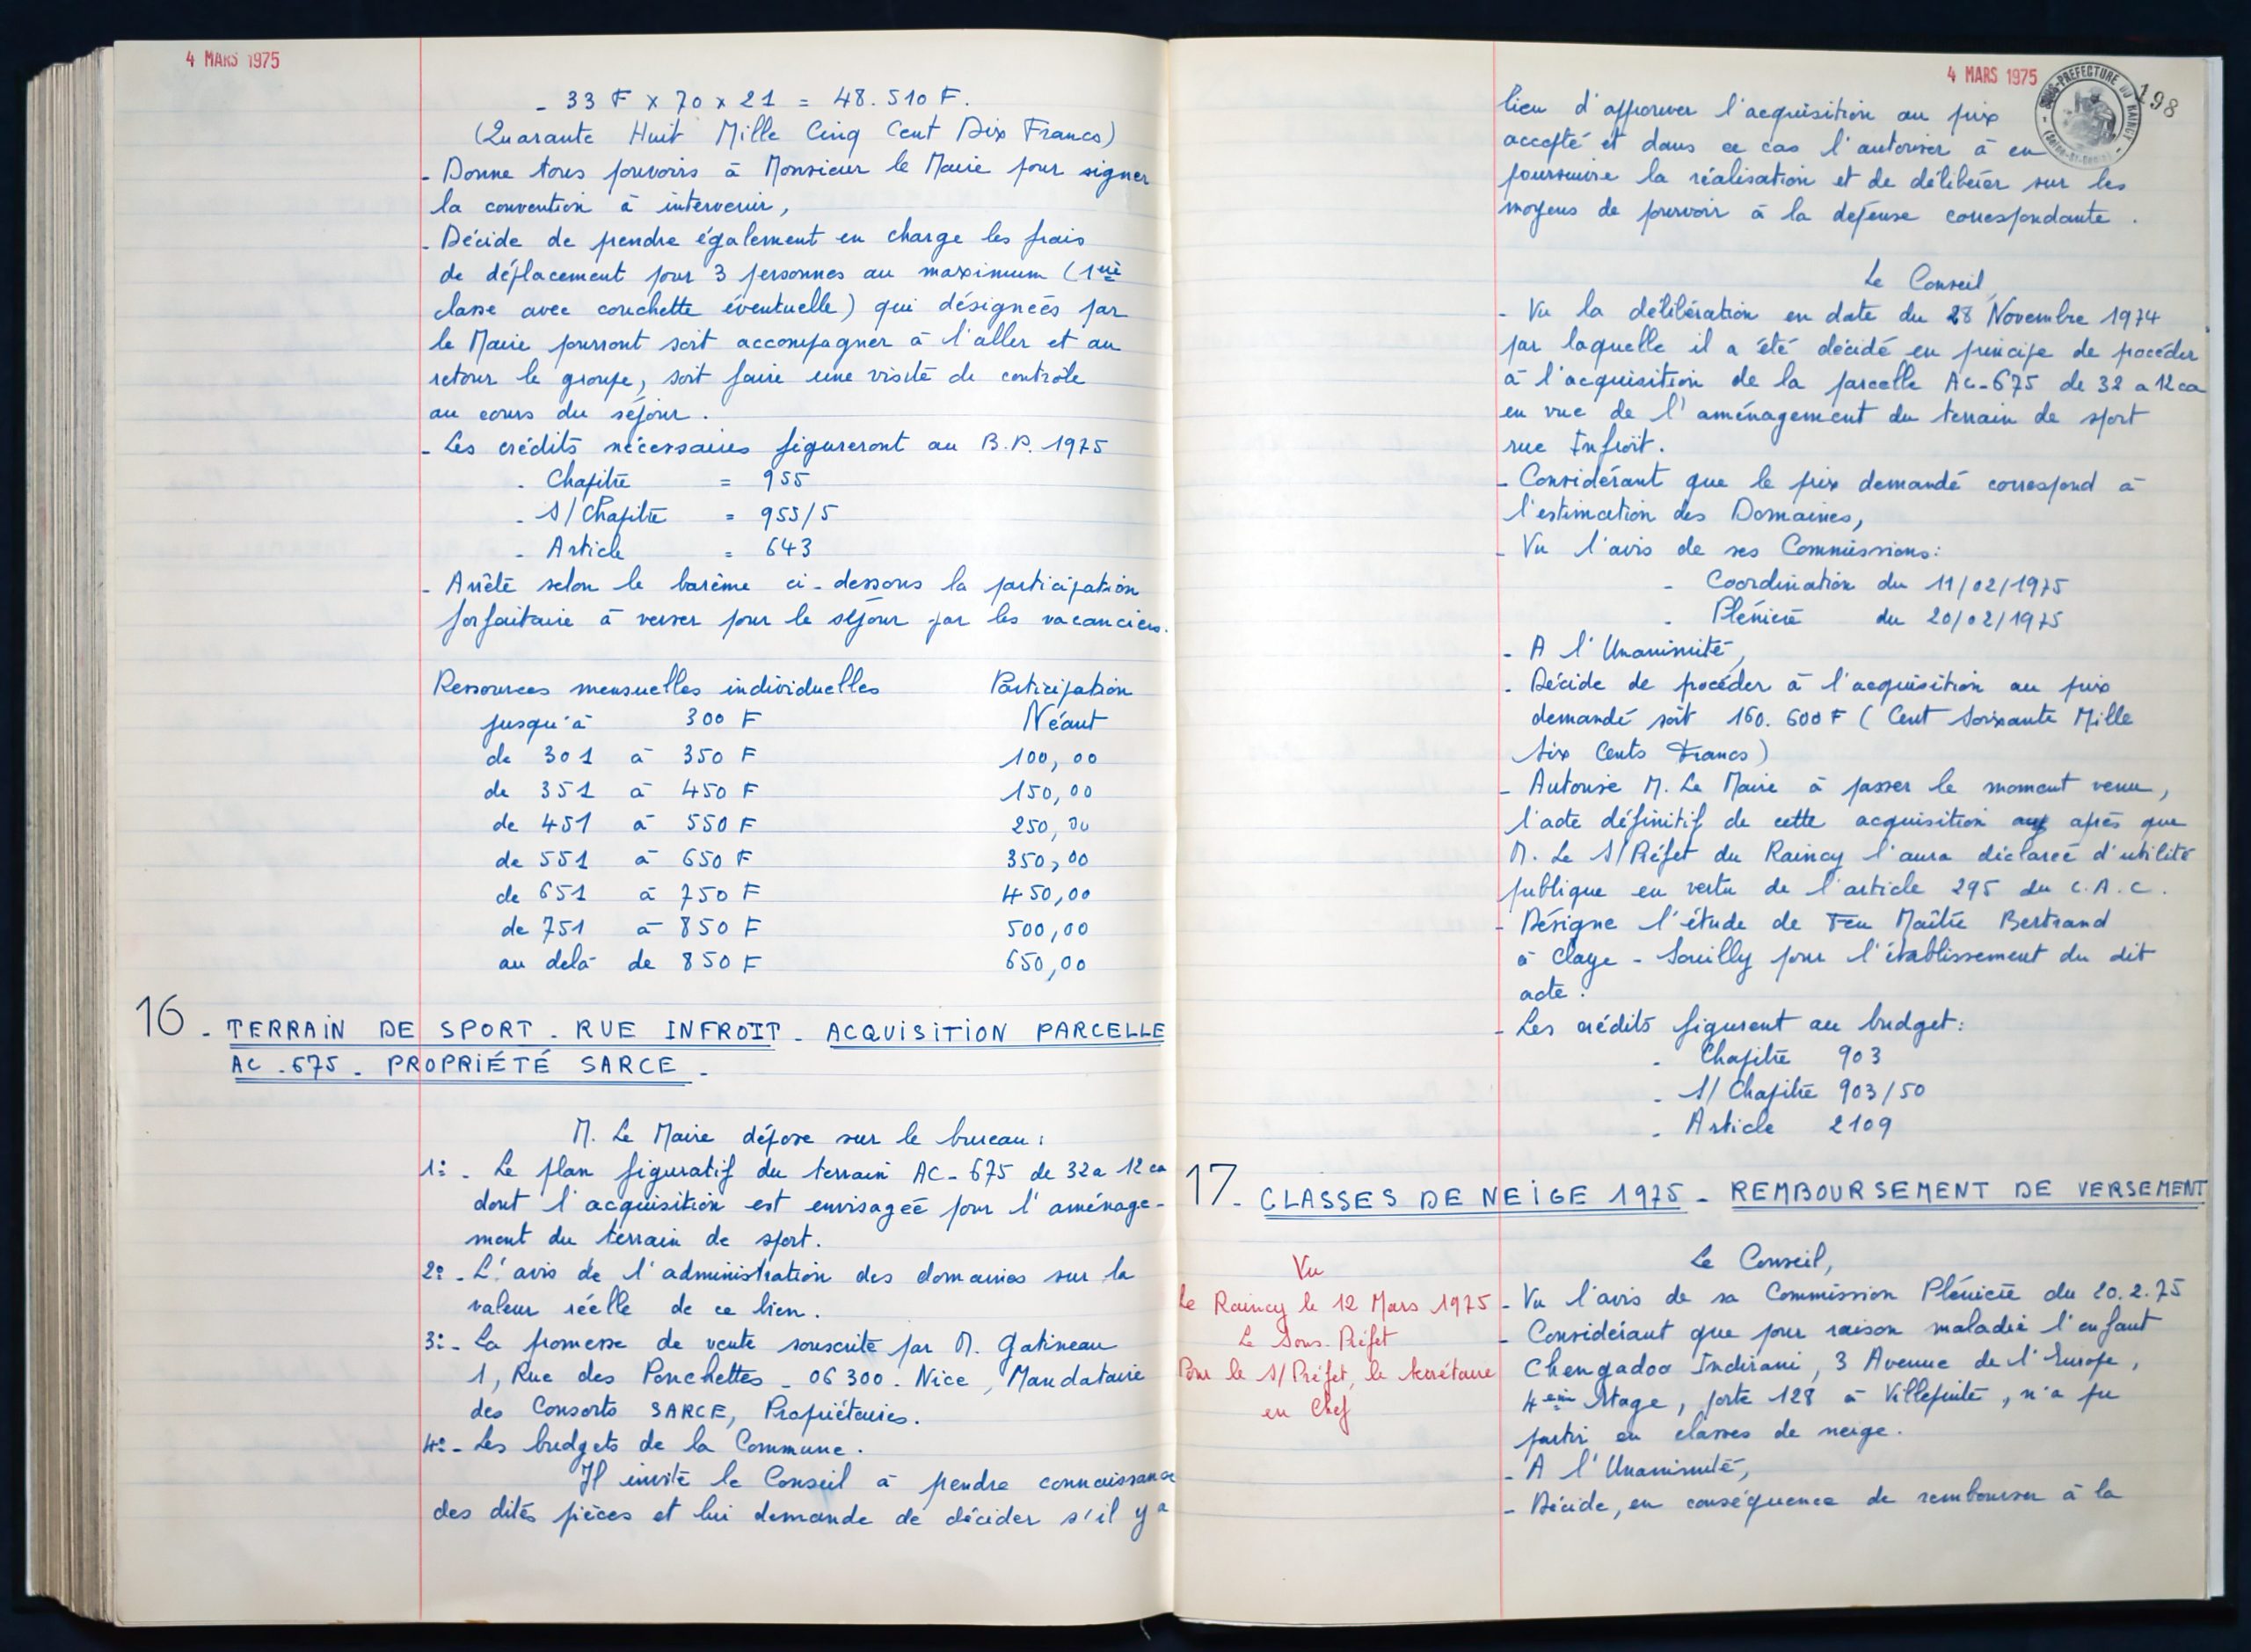 4 MARS 1975
- 33 F x 70 x 21 = 48.510 F.
(Quarante Huit Mille Cinq Cent Dix Francs)
- Donne tous pouvoirs à Monsieur le Maire pour signer
la convention à intervenir,
- Décide de prendre également en charge les frais
de déplacement pour 3 personnes au maximum (1ère
classe avec couchette éventuelle) qui désignées par
le Maire pourront soit accompagner à l'aller et au
retour le groupe, soit faire une visite de contrôle
au cours du séjour.
- Les crédits nécessaires figureront au B.P. 1975
- Chapitre = 955
- S/Chapitre = 955/5
- Article = 643
- Arrête selon le barème ci-dessous la participation
forfaitaire à verser pour le séjour par les vacanciers.
Ressources mensuelles individuelles Participation
jusqu'à 300 F Néant
de 301 à 350 F 100,00
de 351 à 450 F 150,00
de 451 à 550 F 250,00
de 551 à 650 F 350,00
de 651 à 750 F 450,00
de 751 à 850 F 500,00
au delà de 850 F 650,00
16 - TERRAIN DE SPORT - RUE INFROIT - ACQUISITION PARCELLE
AC - 675 - PROPRIÉTÉ SARCE -
M. Le Maire dépose sur le bureau :
1: - Le plan figuratif du terrain AC-675 de 32a 12ca
dont l'acquisition est envisagée pour l'aménage-
ment du terrain de sport.
2: - L'avis de l'administration des domaines sur la
valeur réelle de ce bien.
3: - La promesse de vente souscrite par M. Gatineau
1, Rue des Ponchettes - 06300 - Nice, Mandataire
des Consorts SARCE, Propriétaires.
4: - Les budgets de la Commune.
Il invite le Conseil à prendre connaissance
des dites pièces et lui demande de décider s'il y a
4 MARS 1975
SOUS-PREFECTURE DU RAINCY
198
lieu d'approuver l'acquisition au prix
accepté et dans ce cas l'autoriser à en
poursuivre la réalisation et de délibérer sur les
moyens de pourvoir à la dépense correspondante.
Le Conseil,
- Vu la délibération en date du 28 Novembre 1974
par laquelle il a été décidé en principe de procéder
à l'acquisition de la parcelle AC-675 de 32 a 12 ca
en vue de l'aménagement du terrain de sport
rue Infroit.
- Considérant que le prix demandé correspond à
l'estimation des Domaines,
- Vu l'avis de ses Commissions:
- Coordination du 11/02/1975
- Plénière du 20/02/1975
- A l'Unanimité,
- Décide de procéder à l'acquisition au prix
demandé soit 160.600 F (Cent Soixante Mille
Six Cents Francs)
- Autorise M. Le Maire à passer le moment venu,
l'acte définitif de cette acquisition après que
M. Le S/Préfet du Raincy l'aura déclarée d'utilité
publique en vertu de l'article 295 du C.A.C.
- Désigne l'étude de Feu Maître Bertrand
à Claye-Souilly pour l'établissement du dit
acte.
- Les crédits figurent au budget:
- Chapitre 903
- S/Chapitre 903/50
- Article 2109
17 - CLASSES DE NEIGE 1975 - REMBOURSEMENT DE VERSEMENT
Vu
Le Raincy le 12 Mars 1975
Le Sous-Préfet
Pour le S/Préfet, le Secrétaire
en Chef
Le Conseil,
- Vu l'avis de sa Commission Plénière du 20.2.75
- Considérant que pour raison maladie l'enfant
Chengadoo Indirani, 3 Avenue de l'Europe,
4ème étage, porte 128 à Villepinte, n'a pu
partir en classes de neige.
- A l'Unanimité,
- Décide, en conséquence de rembourser à la